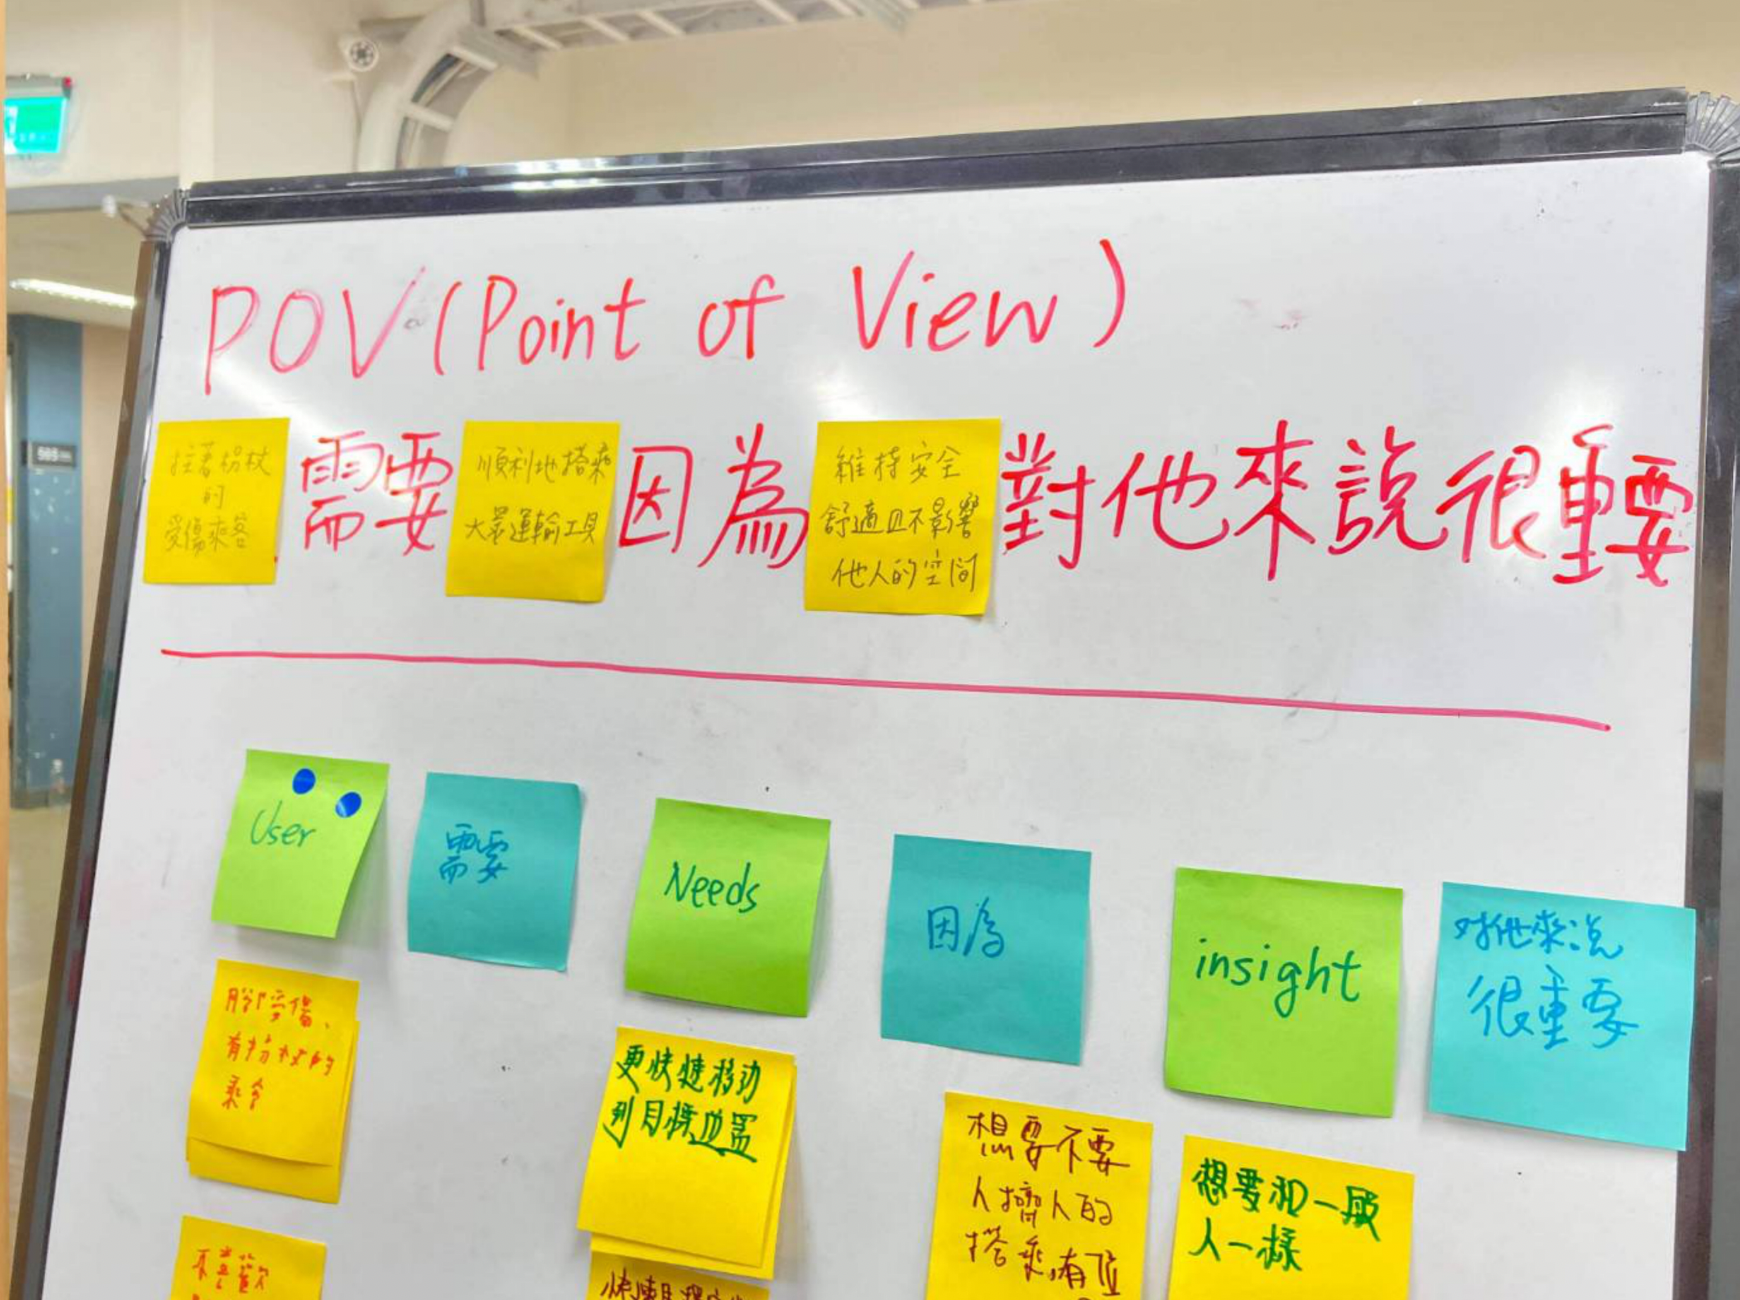 POV (Point of View)
拄著拐杖
的
受傷乘客
需要
順利地搭乘
大眾運輸工具
因為
維持安全
舒適且不影響
他人的空間
對他來說很重要
User
需要
Needs
因為
insight
对他來說
很重要
腳受傷、
有拐杖的
乘客
更快速移动
到目標位置
想要不要
人擠人的
搭乘,有位
想要和一般
人一樣
不喜歡